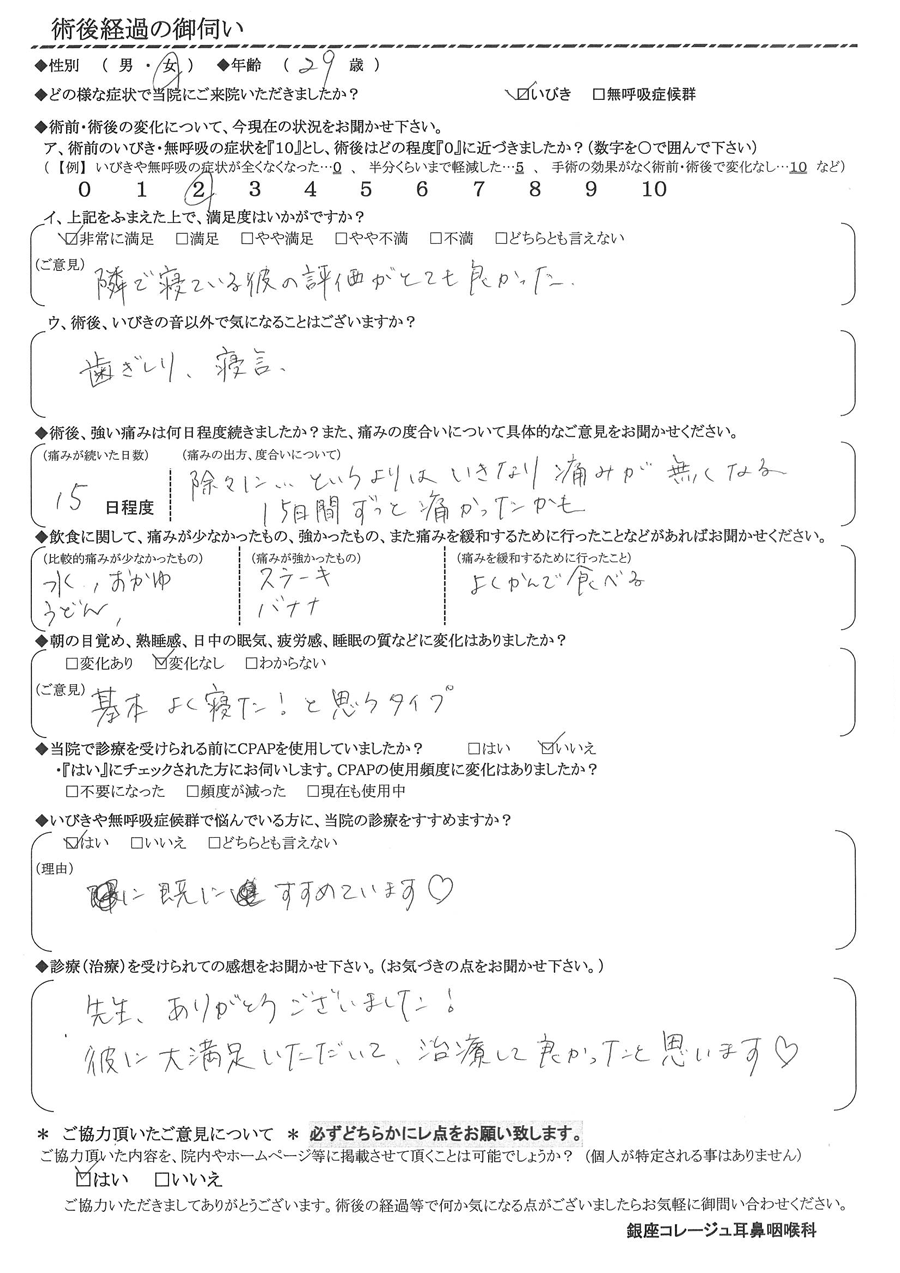 術後経過の御伺い
◆性別 ( 男 ・ 女 ) ◆年齢 ( 29 歳 )
◆どの様な症状で当院にご来院いただきましたか? ☑いびき □無呼吸症候群
◆術前・術後の変化について、今現在の状況をお聞かせ下さい。
ア、術前のいびき・無呼吸の症状を『10』とし、術後はどの程度『0』に近づきましたか?(数字を〇で囲んで下さい)
(【例】いびきや無呼吸の症状が全くなくなった…0 、 半分くらいまで軽減した…5 、 手術の効果がなく術前・術後で変化なし…10 など)
0 1 2 3 4 5 6 7 8 9 10
イ、上記をふまえた上で、満足度はいかがですか?
☑非常に満足 □満足 □やや満足 □やや不満 □不満 □どちらとも言えない
(ご意見) 隣で寝ている彼の評価がとても良かった.
ウ、術後、いびきの音以外で気になることはございますか?
歯ぎしり、寝言、
◆術後、強い痛みは何日程度続きましたか?また、痛みの度合いについて具体的なご意見をお聞かせください。
(痛みが続いた日数) (痛みの出方、度合いについて)
15 日程度
除々に…というよりは いきなり 痛みが 無くなる
15日間ずっと痛かったかも
◆飲食に関して、痛みが少なかったもの、強かったもの、また痛みを緩和するために行ったことなどがあればお聞かせください。
(比較的痛みが少なかったもの) (痛みが強かったもの) (痛みを緩和するために行ったこと)
水、おかゆ ステーキ よくかんで食べる
うどん, バナナ
◆朝の目覚め、熟睡感、日中の眠気、疲労感、睡眠の質などに変化はありましたか?
□変化あり ☑変化なし □わからない
(ご意見) 基本 よく寝た!と思うタイプ
◆当院で診療を受けられる前にCPAPを使用していましたか? □はい ☑いいえ
・『はい』にチェックされた方にお伺いします。CPAPの使用頻度に変化はありましたか?
□不要になった □頻度が減った □現在も使用中
◆いびきや無呼吸症候群で悩んでいる方に、当院の診療をすすめますか?
☑はい □いいえ □どちらとも言えない
(理由)
に 既に すすめています♡
◆診療(治療)を受けられての感想をお聞かせ下さい。(お気づきの点をお聞かせ下さい。)
先生、ありがとうございました!
彼に大満足いただいて、治療して良かったと思います♡
* ご協力頂いたご意見について * 必ずどちらかにレ点をお願い致します。
ご協力頂いた内容を、院内やホームページ等に掲載させて頂くことは可能でしょうか? (個人が特定される事はありません)
☑はい □いいえ
ご協力いただきましてありがとうございます。術後の経過等で何か気になる点がございましたらお気軽に御問い合わせください。
銀座コレージュ耳鼻咽喉科